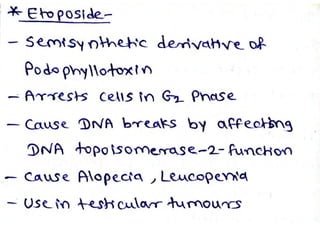 * Etoposide-
- Semisynthetic derivative of
Podophyllotoxin
- Arrests cells in G2 Phase
- Cause DNA breaks by affecting
DNA topoisomerase-2-function
- Cause Alopecia, Leucopenia
- Use in testicular tumours